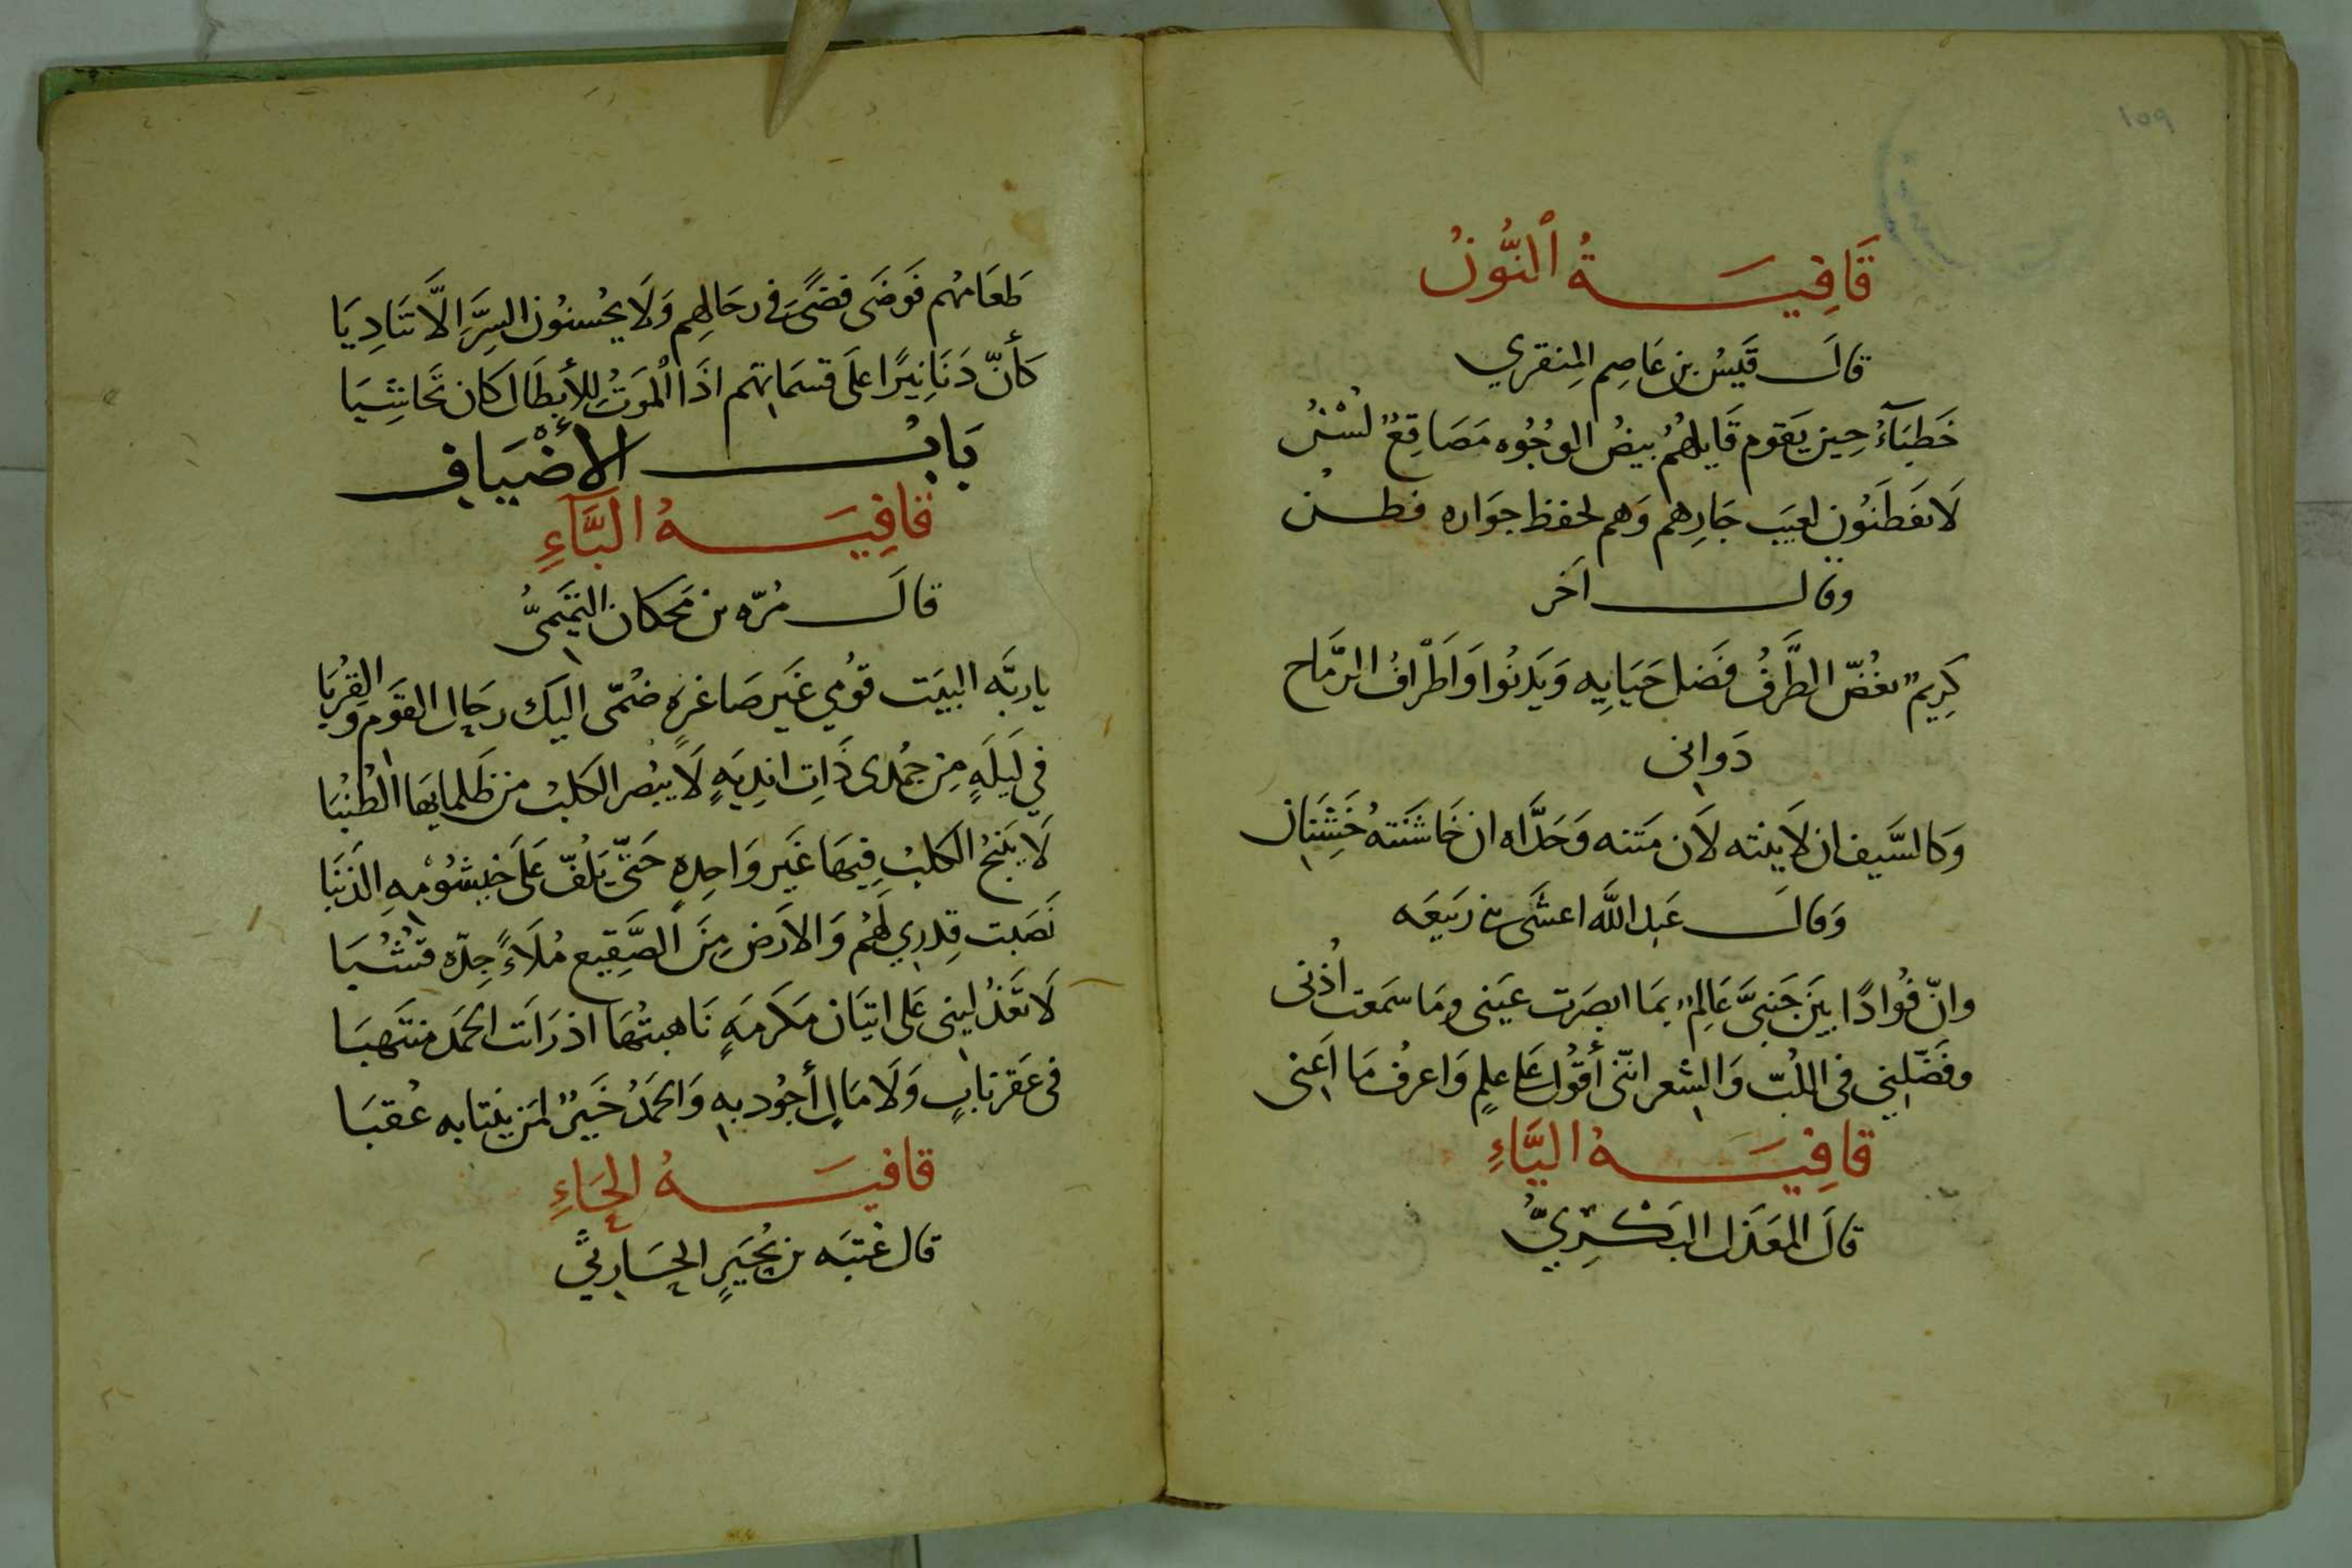 ١٥٩
قَافِيَةُ ٱلنُّونُ
قالَ قَيَسُ بن عَاصِم المِنقري
خَطبَآءُ حِين يَقوم قَايلهُمُ بيضُ الوجُوُه مَصَاقِعٌ لُسْنُ
لَا يفَطَنوُن لعيَب جَارِهم وَهم لحفظ جوَاره فطن
وقال اَخر
كَرِيم يغُضّ الطَّرفُ فَضل حَيَايِه وَيَدنُوا وَاَطْرافُ الرّمَاح
دَوانى
وَكالسَّيف ان لَا ينته لَان مَتنه وَحَدَّاه ان خَاشَنَتهُ خَشِنَان
وَقالَ عَبد اللَّه اعشَى بن رَبيعَه
وانّ فُوادًا بيَن جَنبىَّ عَالِمٌ بمَا ابصَرت عيَنى ومَا سَمَعت اُذنى
وفَضّلِنِي فى اللُبّ وَالشعر انّنى أقوُل عَلى علمٍ وَاعرفُ مَا اَعنى
قَافِيَةُ اليَّاءِ
قالَ المعَذل البَكْرِيُّ
طَعَامهُم فَوضَى فضًى فى رحَالهِم وَلَا يحُسنوُن السِرَّ اِلَّا تنَادِيَا
كَأنّ دَنَانِيرًا علَى قسمَاتهم اذَا الْموَتُ للأبطَال كان تحَاشِيَا
بَابُ الأضْيَافِ
قافِيَةُ البَّآءِ
قالَ مُرّه بن مَحكان التيَمىُّ
يا ربَّه البيَت قوُمي غَير صَاغرةٍ ضُمّى اليَك رحَال القوَم والقِرُبَا
في لَيلَةٍ مِن جُمَدى ذَاتِ اندِيَةٍ لَا يبُصر الكلبُ من ظَلمايهَا الطُنُبَا
لَا يَنبحُ الكلبُ فِيهَا غَير وَاحِدةٍ حَتّى يَلُفّ عَلَى خيشُومْهِ الذنبَا
نَصَبت قِدرِي لَهُم وَالاَرض مِنَ الصَّقِيع مُلَاءً جِدّه قشُبَا
لَا تعَذُليِنى عَلى اتيَان مَكرمَةٍ نَاهبتُهَا اذ رَاَت الحَمَد منتَهبَا
فى عَقر نابٍ وَلَا مَالٍ أجوُد بهِ وَالحَمَدُ خَيرٌ لمَن ينتابه عُقبَا
قافيَةُ الحَاءِ
قال عُتبَه بن بُجَيرٍ الحَارثي